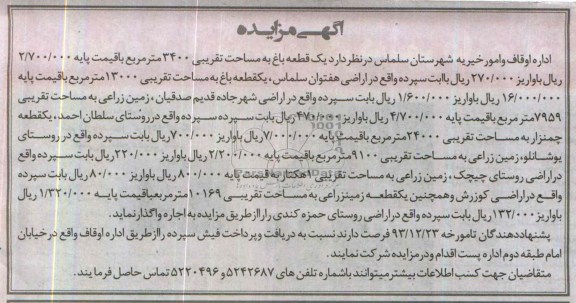 آگهی مزایده
اداره اوقاف وامور خیریه شهرستان سلماس درنظر دارد یک قطعه باغ به مساحت تقریبی ۳۴۰۰ مترمربع باقیمت پایه ۲/۷۰۰/۰۰۰
ریال باواریز ۲۷۰/۰۰۰ ریال بابت سپرده واقع در اراضی هفتوان سلماس ، یکقطعه باغ به مساحت تقریبی ۱۳۰۰۰ مترمربع باقیمت پایه
۱۶/۰۰۰/۰۰۰ ریال باواریز ۱/۶۰۰/۰۰۰ ریال بابت سپرده واقع در اراضی شهر جاده قدیم صدقیان ، زمین زراعی به مساحت تقریبی
۷۹۵۹ متر مربع باقیمت پایه ۴/۷۰۰/۰۰۰ ریال باواریز ۴۷۰/۰۰۰ ریال بابت سپرده سپرده واقع در روستای سلطان احمد، یکقطعه
چمنزار به مساحت تقریبی ۲۴۰۰۰ مترمربع باقیمت پایه ۷/۰۰۰/۰۰۰ ریال باواریز ۷۰۰/۰۰۰ ریال بابت سپرده واقع در روستای
یوشانلو، زمین زراعی به مساحت تقریبی ۹۱۰۰ مترمربع باقیمت پایه ۲/۲۰۰/۰۰۰ ریال باواریز ۲۲۰/۰۰۰ ریال بابت سپرده واقع
در اراضی روستای چیچک ، زمین زراعی به مساحت تقریبی ۱ هکتار به قیمت پایه ۸۰۰/۰۰۰ ریال باواریز ۸۰/۰۰۰ ریال بابت سپرده
واقع در اراضی کوزرش وهمچنین یکقطعه زمینزراعی به مساحت تقریبی ۱۰۱۶۹ مترمربع باقیمت پایه ۱/۳۲۰/۰۰۰ ریال
باواریز ۱۳۲/۰۰۰ ریال بابت سپرده واقع در اراضی روستای حمزه کندی را از طریق مزایده به اجاره واگذار نماید.
پشنهاددهندگان تامورخه ۹۳/۱۲/۲۳ فرصت دارند نسبت به دریافت وپرداخت فیش سپرده را از طریق اداره اوقاف واقع در خیابان
امام طبقه دوم اداره پست اقدام و درمزایده شرکت نمایند.
متقاضیان جهت کسب اطلاعات بیشتر میتوانند باشماره تلفن های ۵۲۴۲۶۸۷ و ۵۲۲۰۴۹۶ تماس حاصل فرمایند.